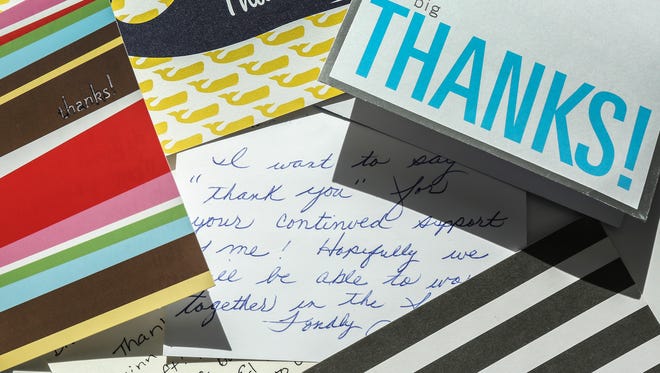 big
THANKS!
thanks!
I want to say
"thank you" for
your continued support
me! Hopefully we
be able to
together in the
Fondly